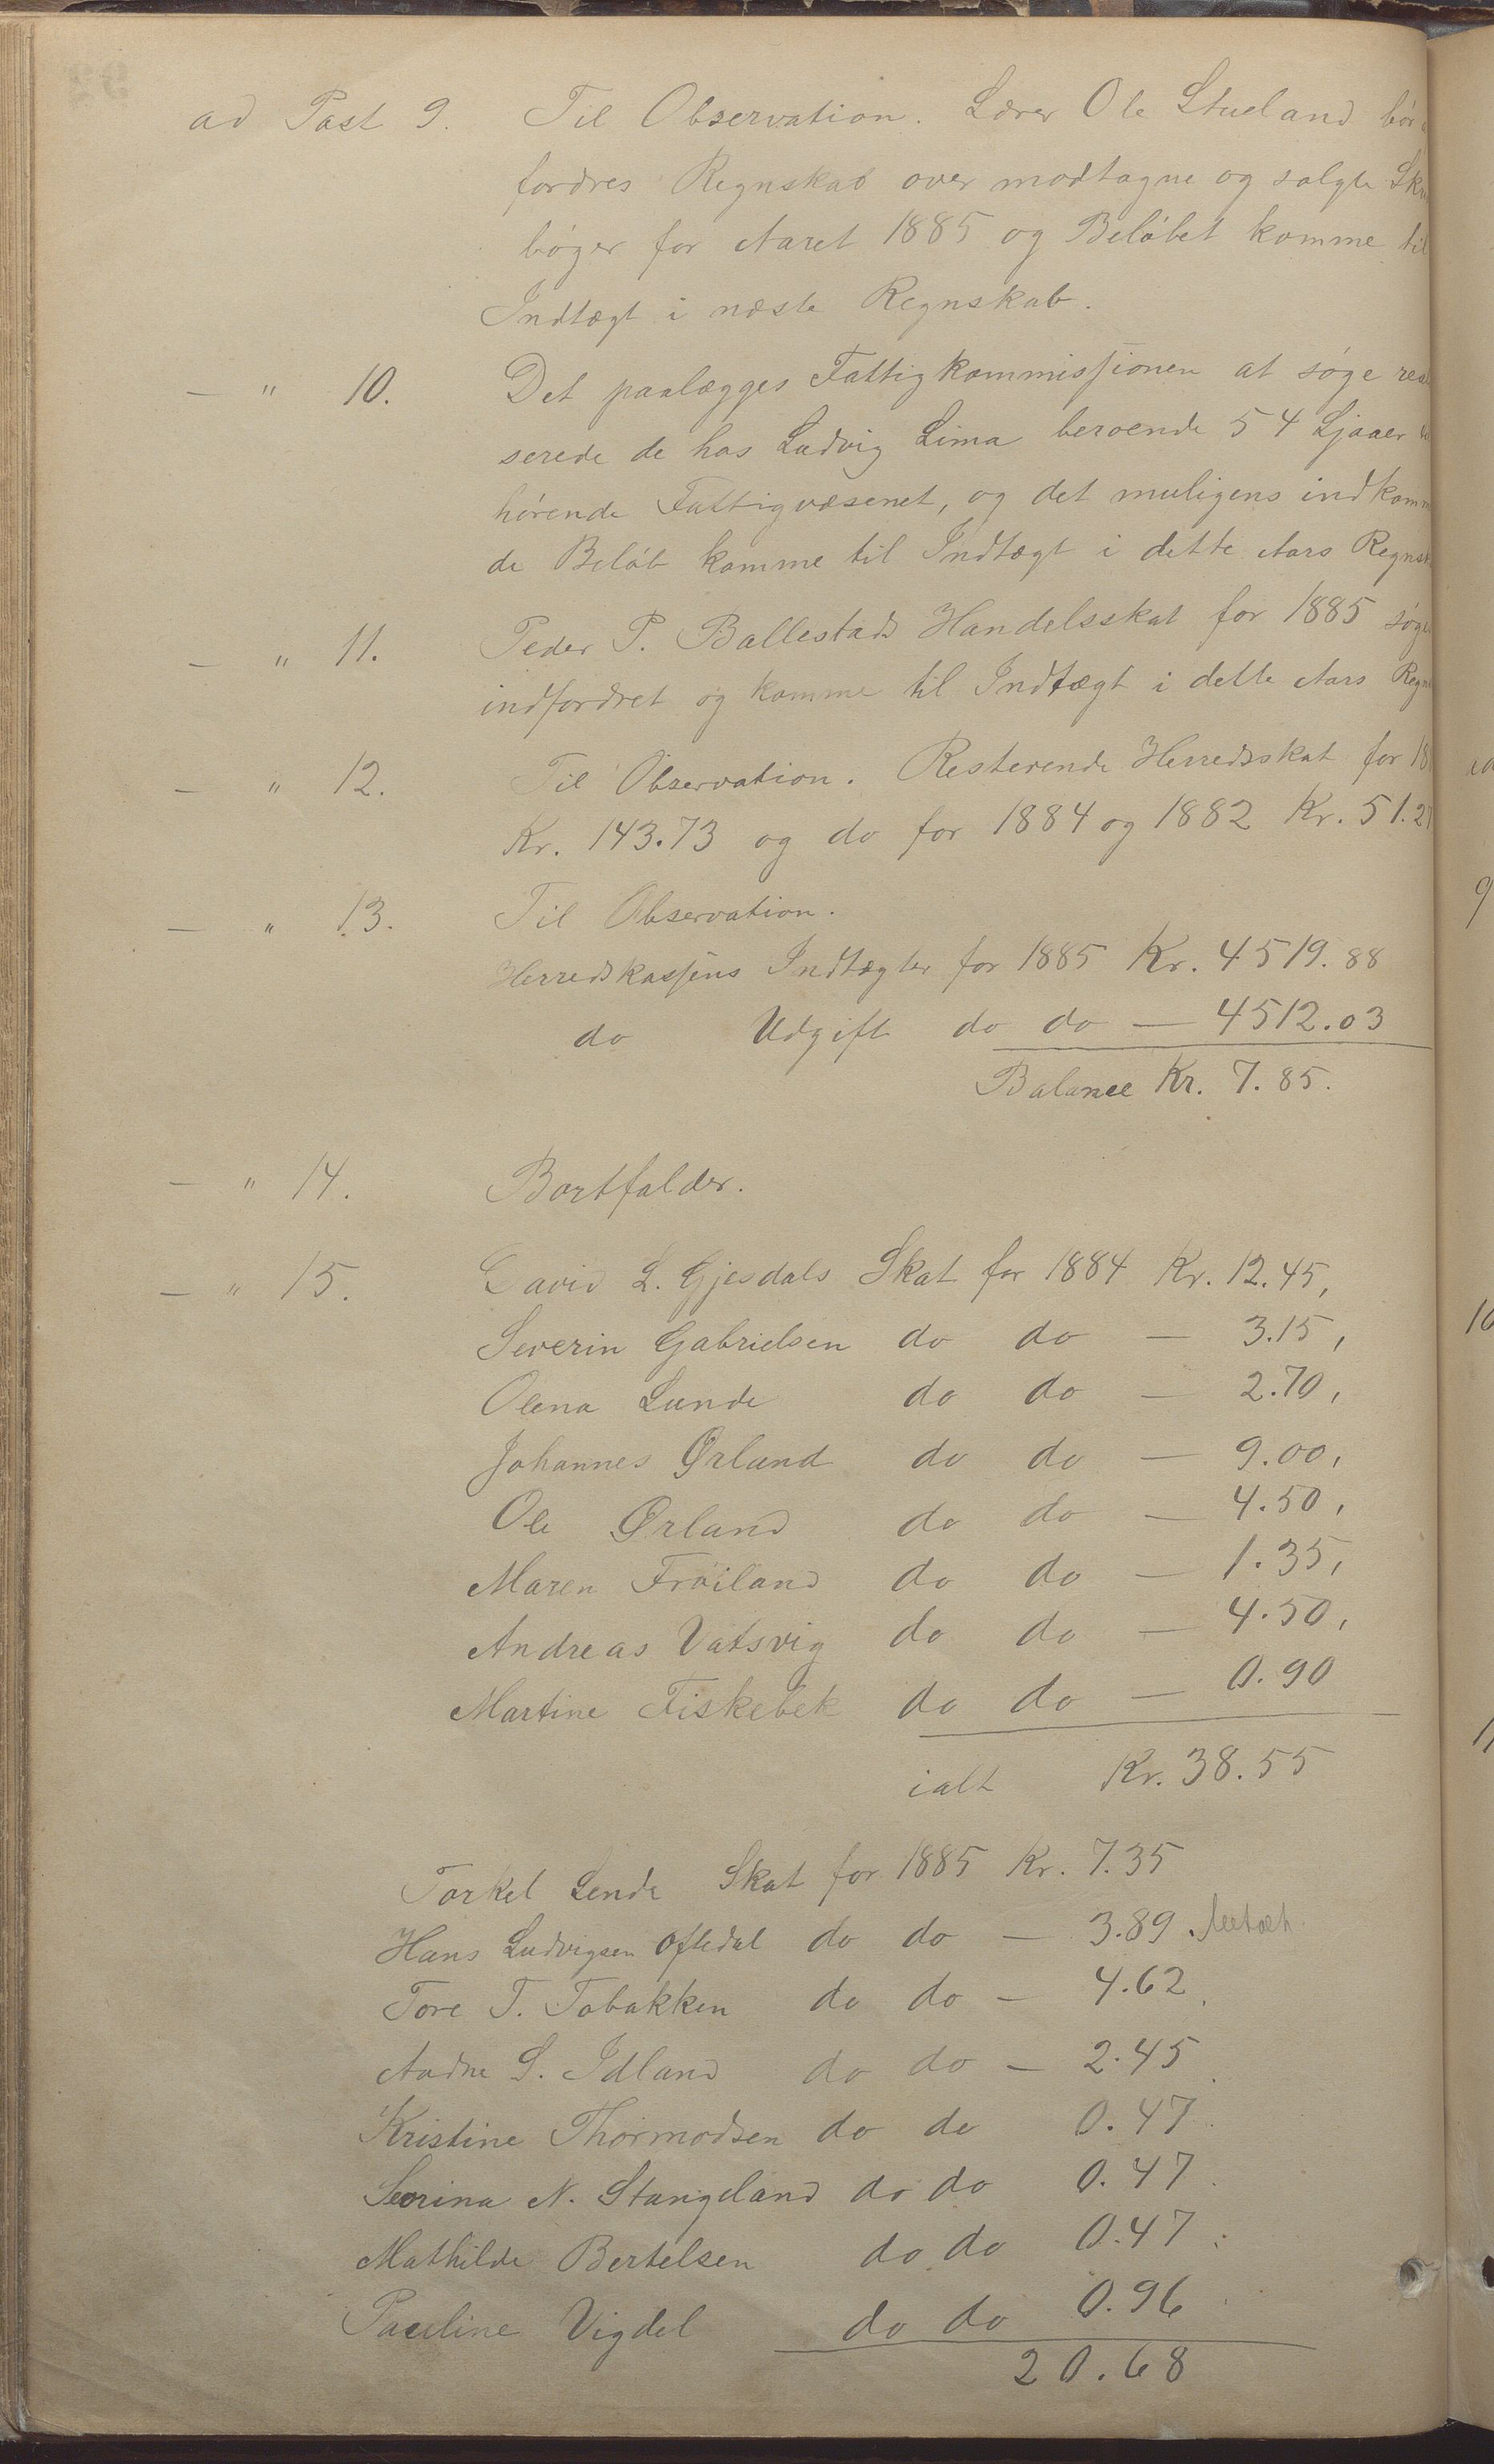 ad Post 9. Til Observation. Lærer Ole Stueland bør
fordres Regnskab over modtagne og solgte Skr
bøger for Aaret 1885 og Beløbet komme til
Indtægt i næste Regnskab.
— " 10. Det paalægges Fattigkommissionen at søge rea
serede de hos Ludvig Lima beroende 54 Ljaaer
hørende Fattigvæsenet, og det muligens indkomm
de Beløb komme til Indtægt i dette Aars Regnsk
— " 11. Peder P. Ballestads Handelsskat for 1885 søg
indfordret og komme til Indtægt i dette Aars Regn
— " 12. Til Observation. Resterende Herredsskat for 18
Kr. 143.73 og do for 1884 og 1882 Kr. 51.27
— " 13. Til Observation.
Herredskassens Indtægter for 1885 Kr. 4519.88
do Udgift do do — 4512.03
Balance Kr. 7.85.
— " 14. Bortfalder.
— " 15. David L. Gjesdals Skat for 1884 Kr. 12.45,
Severin Gabrielsen do do — 3.15,
Olena Lunde do do — 2.70,
Johannes Ørland do do — 9.00,
Ole Ørland do do — 4.50,
Maren Frøiland do do — 1.35,
Andreas Vatsvig do do — 4.50,
Martine Fiskebek do do — 0.90
ialt Kr. 38.55
Torkel Lende Skat for 1885 Kr. 7.35
Hans Ludvigsen Oftedal do do — 3.89.
Tore T. Tobakken do do — 4.62
Aadne S. Idland do do — 2.45
Kristine Thormodsen do do 0.47
Seorina N. Stangeland do do 0.47
Mathilde Bertelsen do do 0.47
Pauline Vigdel do do 0.96
20.68